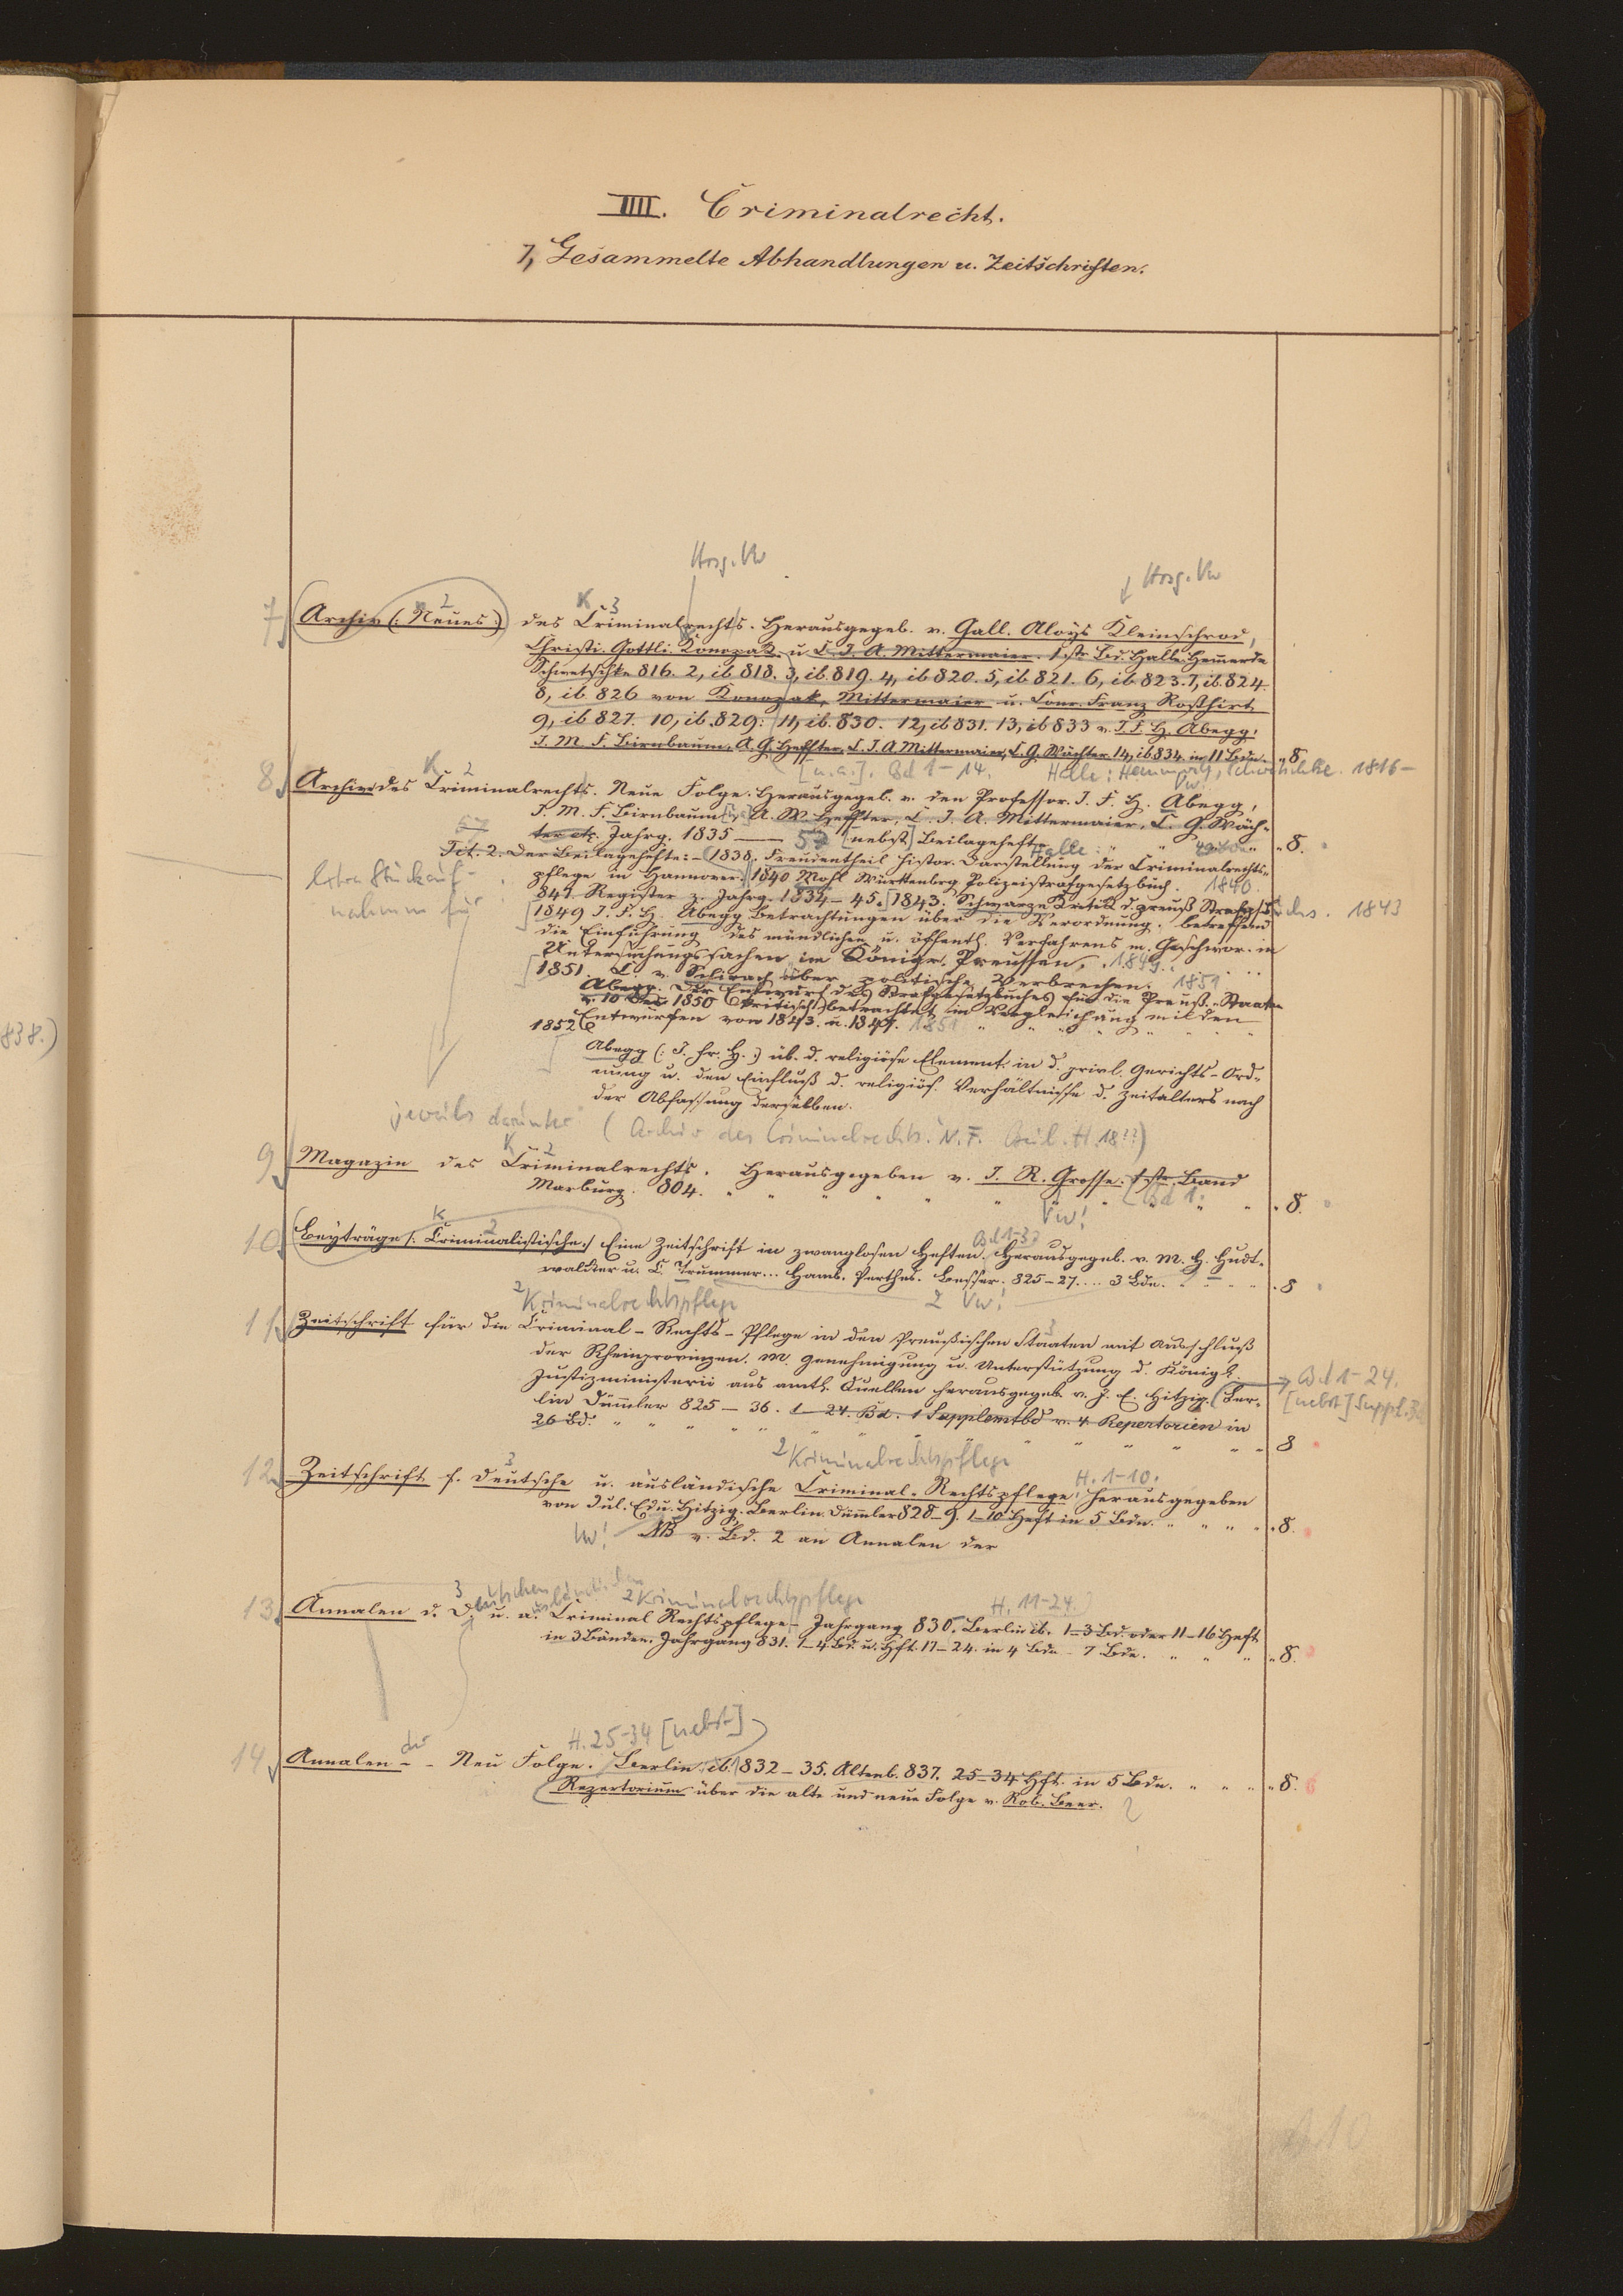 IIII. Criminalrecht.
7, Gesammelte Abhandlungen u. Zeitschriften.
Hrsg. Vw
Hrsg. Vw
K 3
2
7. Archiv (: Neues :) des Criminalrechts. Herausgegeb. v. Gall. Aloys Kleinschrod,
Christi. Gottli. Konopak u C. J. A. Mittermaier. 1ste Bd. Halle. Hemerde
Schwetschke 816. 2, ib 818. 3, ib 819. 4, ib 820. 5, ib 821. 6, ib 823. 7, ib. 824.
8, ib 826 von Konopak, Mittermaier u. Conr. Franz Roßhirt
9, ib 827. 10, ib. 829: 11, ib. 830. 12, ib 831. 13, ib 833 v. J. F. H. Abegg,
J. M. F. Birnbaum, A. G. Heffter, C. J. A Mittermaier, C. G. Wächter 14, ib 834. in 11 Bdn. 8
[u. a.]. Bd 1-14. Halle: Hemmerde, Schwetschke. 1816-
K 2
Vw.
8. Archiv des Criminalrechts. Neue Folge. Herausgegeb. v. den Professor. J. F. H. Abegg,
J. M. F. Birnbaum, A. W. Heffter, C. J. A. Mittermaier, C. G. Wäch-
57
ter etc. Jahrg. 1835 — 57 [nebst] Beilagehefte Halle: 8.
Tit. 2. Der Beilagehefte: - (1838. Freudentheil histor. Darstellung der Criminalrechts-
pflege in Hannover. 1840 Mohl Württenbrg Polizeistrafgesetzbuch. 1840.
Extra Stückauf-
nahmen für
841 Register z. Jahrg. 1834 - 45. 1843. Schwarze Kritik d. preuß Strafgsb uchs. 1843
[1849 J. F. H. Abegg Betrachtungen über die Verordnung. betreffend
die Einführung des mündlichen u. öffentl. Verfahrens m. Geschwor. in
Untersuchungssachen im Königr. Preussen, 1849.
[1851. C. v. Schirach über politische Verbrechen. 1851
Abegg. Der Entwurf des Strafgesetzbuches für die Preuß. Staaten
v. 10 Dec 1850 kritisch betrachtet in Vergleichung mit den
Entwürfen von 1843. u. 1847. 1851
1852
Abegg (: J. Fr. H. :) üb. d. religiöse Element in d. peinl. Gerichts-Ord-
nung u. den Einfluß d. religiös. Verhältnisse d. Zeitalters nach
der Abfassung derselben.
jeweils darunter (Archiv des Criminalrechts. N. F. Beil. H. 18??)
K 2
9 Magazin des Criminalrechts. Herausgegeben v. J. R. Grosse. 1ste Band
Marburg. 804. [Bd 1. 8.
Vw!
K 2
Bd 1-3
10. Beyträge (: Criminalistische :) Eine Zeitschrift in zwanglosen Heften. Herausgegeb. v. M. H. Hudt-
walcker u. C. Trummer... Hamb. Perthes. Besser. 825-27.... 3 Bde. 8
2 Kriminalrechtspflege
2 Vw!
3
11. Zeitschrift für die Criminal-Rechts-Pflege in den Preußischen Staaten mit Ausschluß
der Rheinprovinzen. M. Genehmigung u. Unterstützung d. Königl.
Justizministerii aus amtl. Quellen herausgegeb. v. J. E. Hitzig. (Ber- → Bd 1-24.
lin Dümmler 825 - 36. 1-24. Bd. 1 Supplemtbd v. 4 Repertorien in [nebst] Suppl. Bd
26 Bd. 8
2 Kriminalrechtspflege
3
H. 1-10.
12. Zeitschrift f. deutsche u. ausländische Criminal-Rechtspflege. Herausgegeben
von Jul. Edu. Hitzig. Berlin. Dümmler 828-9. 1-10 Heft in 5 Bdn. 8.
Vw! NB v. Bd. 2 an Annalen der
3 eutschen ausländischen 2 Kriminalrechtspflege
H. 11-24.
13. Annalen d. D. u. a. Criminal Rechtspflege - Jahrgang 830. Berlin ib. 1-3 Bd. oder 11-16 Heft
in 3 Bänden. Jahrgang 831. 1-4 Bd. u. Hft. 17-24. in 4 Bdn - 7 Bde. 8.
H. 25-34 [nebst]
der
14. Annalen - - Neue Folge. Berlin. ib. 832-35. Altenb. 837. 25-34 Hft. in 5 Bdn. 8.
Repertorium über die alte und neue Folge v. Rob. Beer.
838.)